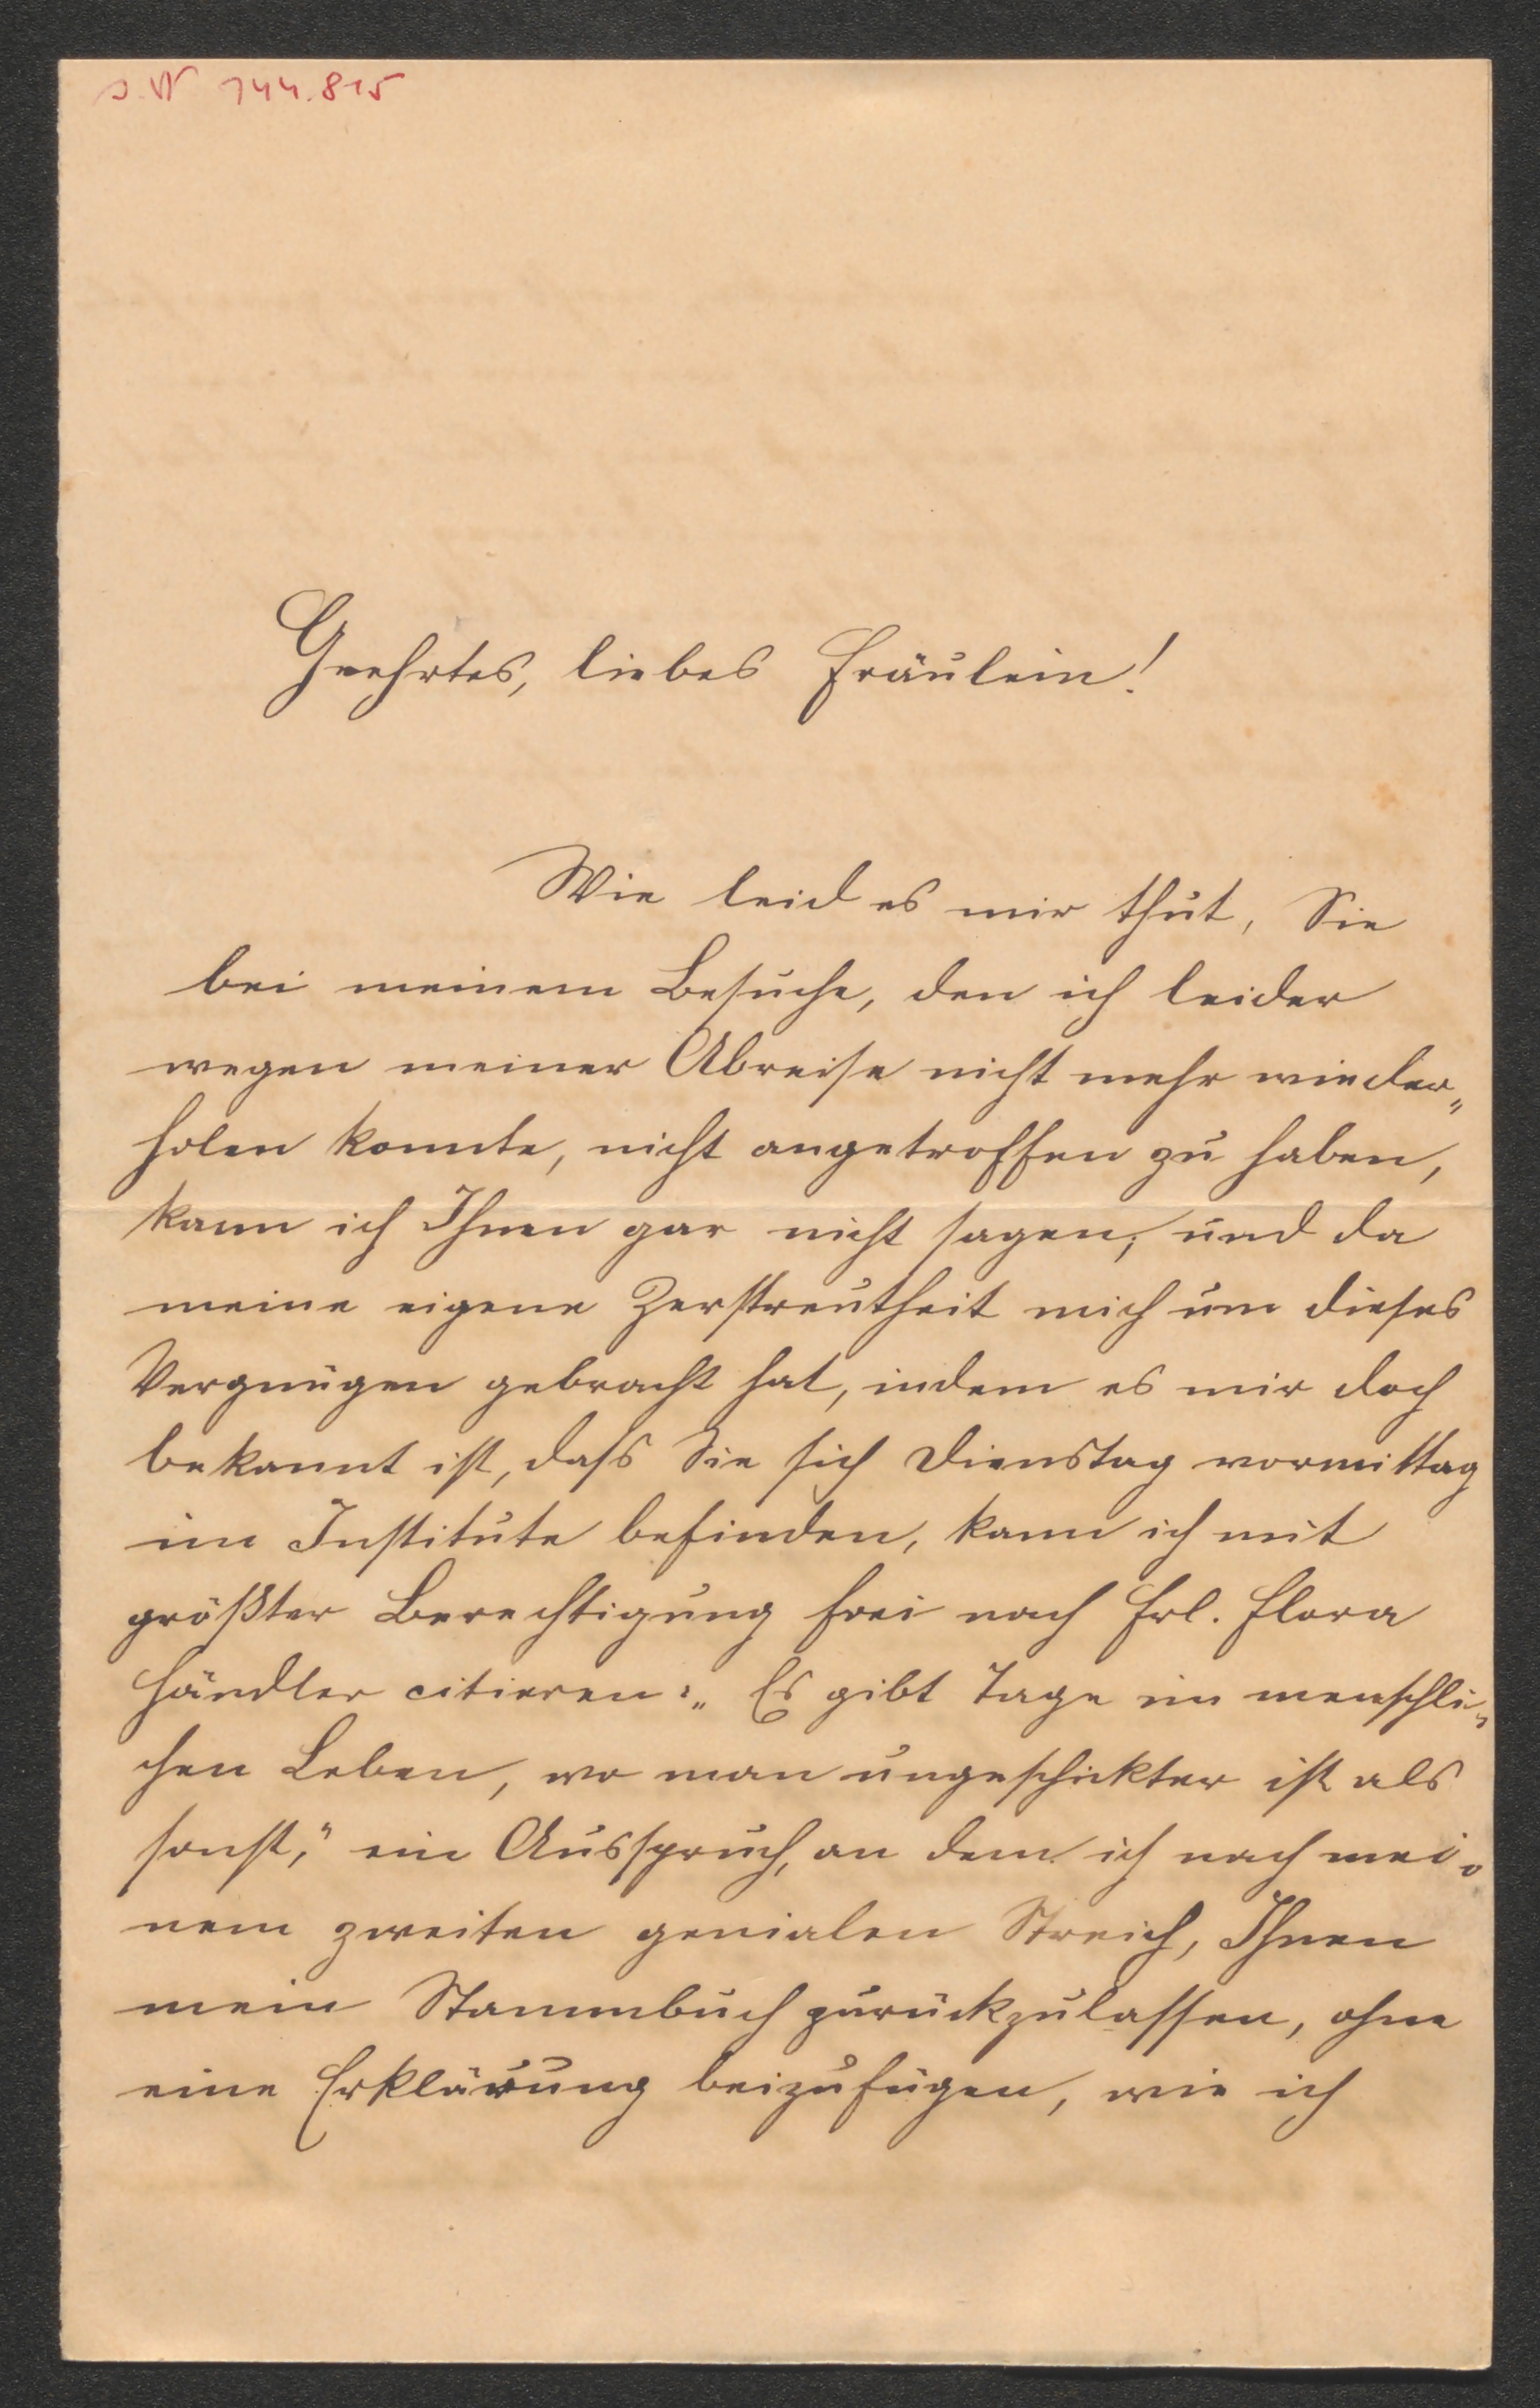 J.N 144.815
Geehrtes, liebes Fräulein!
Wie leid es mir thut, Sie
bei meinem Besuche, den ich leider
wegen meiner Abreise nicht mehr wieder„
holen konnte, nicht angetroffen zu haben,
kann ich Ihnen gar nicht sagen; und da
meine eigene Zerstreutheit mich um dieses
Vergnügen gebracht hat, indem es mir doch
bekannt ist, dass Sie sich Dienstag vormittag
im Institute befinden, kann ich mit
größter Berechtigung frei nach Frl. Flora
Händler citieren: „Es gibt Tage im menschli„
chen Leben, wo man ungeschickter ist als
sonst,“ ein Ausspruch, an dem ich nach mei„
nem zweiten genialen Streich, Ihnen
mein Stammbuch zurückzulassen, ohne
eine Erklärung beizufügen, wie ich